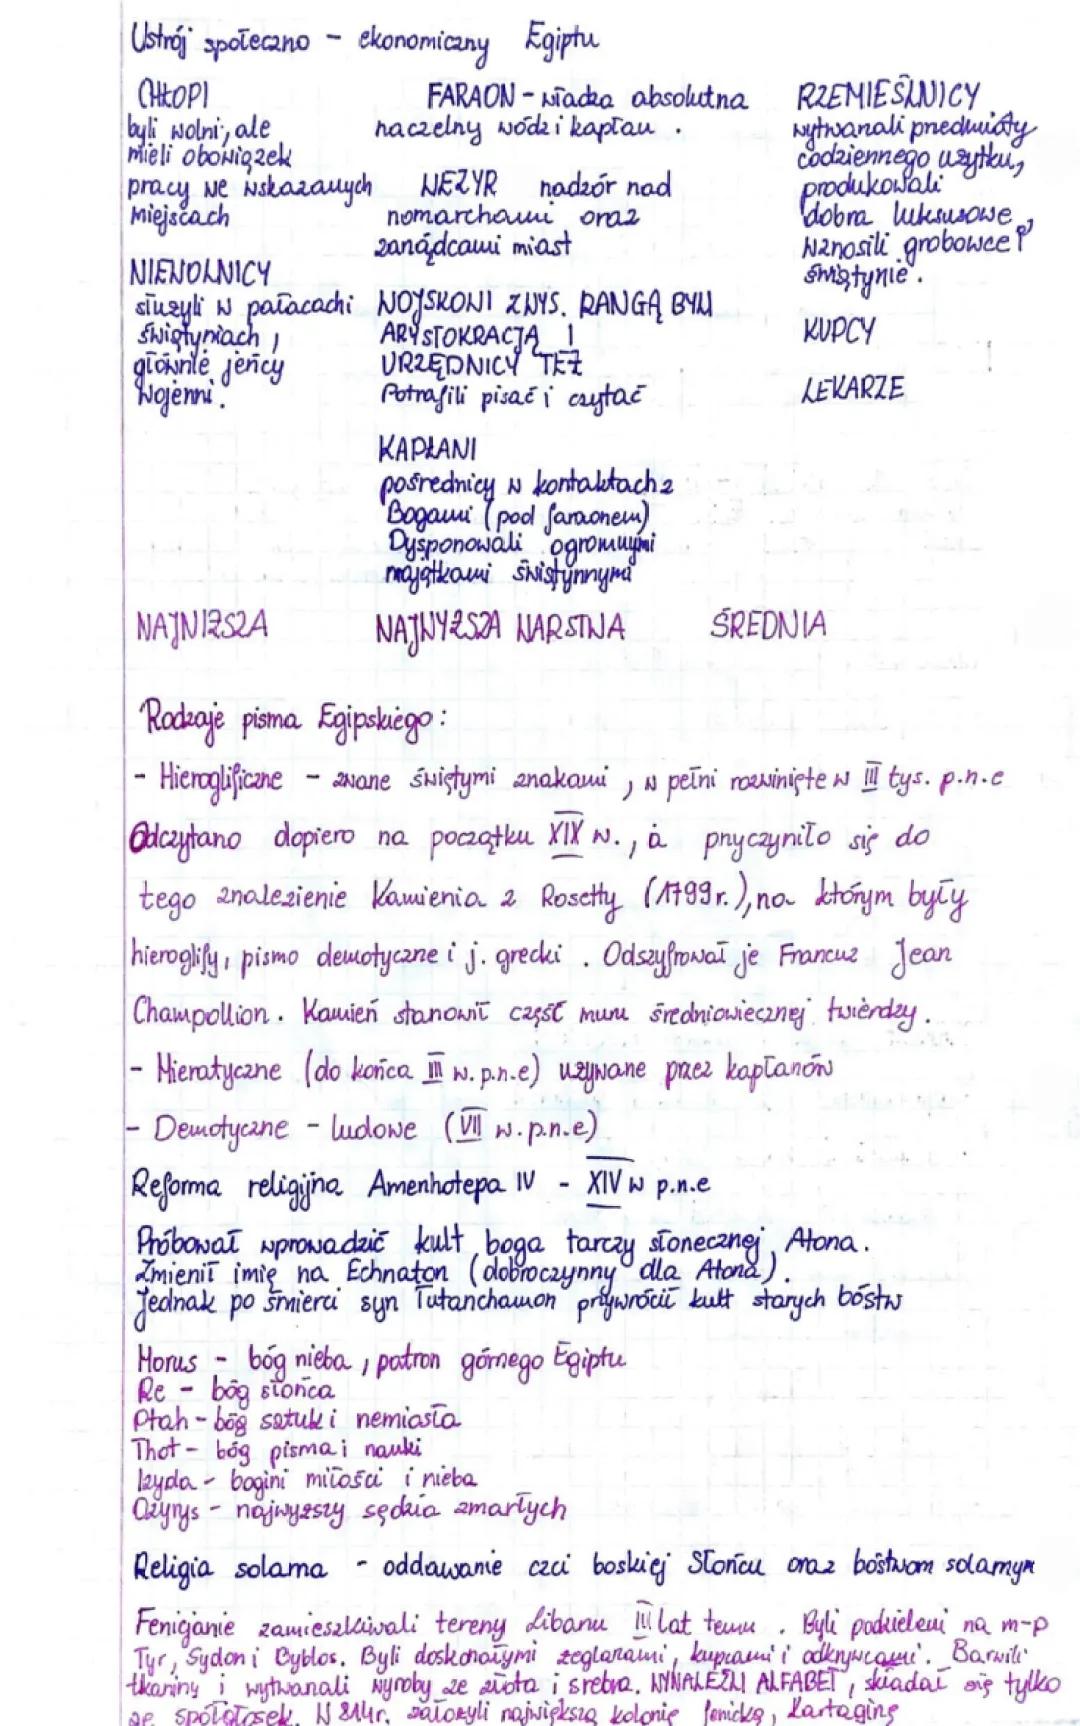 Ustrój społeczno - ekonomiczny Egiptu
CHŁOPI
byli wolni, ale
mieli obowiązek
pracy we wskazanych
miejscach
NIEWOLNICY
służyli w pałacach i
świątyniach,
głównie jeńcy
wojenni.
FARAON - władza absolutna
naczelny wódz i kapłan.
WEZYR nadzór nad
nomarchami oraz
zarządcami miast
WOJSKOWI Z WYS. RANGĄ BYLI
ARYSTOKRACJĄ I
URZĘDNICY TEŻ
Potrafili pisać i czytać
KAPŁANI
pośrednicy w kontaktach z
Bogami (pod faraonem)
Dysponowali ogromnymi
majątkami świątynnymi
RZEMIEŚLNICY
wytwarzali przedmioty
codziennego użytku,
produkowali
dobra luksusowe,
wznosili grobowce i
świątynie.
KUPCY
LEKARZE
NAJNIŻSZA NAJWYŻSZA WARSTWA ŚREDNIA
Rodzaje pisma Egipskiego:
- Hieroglificzne - zwane świętymi znakami, w pełni rozwinięte w III tys. p.n.e
Odczytano dopiero na początku XIX w., a przyczyniło się do
tego znalezienie Kamienia z Rosetty (1799r.), na którym były
hieroglify, pismo demotyczne i j. grecki. Odszyfrował je Francuz Jean
Champollion. Kamień stanowił część muru średniowiecznej twierdzy.
- Hieratyczne (do końca III w. p.n.e) używane przez kapłanów
- Demotyczne - ludowe (VII w. p.n.e)
Reforma religijna Amenhotepa IV - XIV w p.n.e
Próbował wprowadzić kult boga tarczy słonecznej, Atona.
Zmienił imię na Echnaton (dobroczynny dla Atona).
Jednak po śmierci syn Tutanchamon przywrócił kult starych bóstw
Horus - bóg nieba, patron górnego Egiptu
Re - bóg słońca
Ptah - bóg sztuk i rzemiosła
Thot - bóg pisma i nauki
Izyda - bogini miłości i nieba
Ozyrys - najwyższy sędzia zmarłych
Religia solarna - oddawanie czci boskiej Słońcu oraz bóstwom solarnym
Fenicjanie zamieszkiwali tereny Libanu III lat temu. Byli podzieleni na m-p
Tyr, Sydon i Byblos. Byli doskonałymi żeglarzami, kupcami i odkrywcami. Barwili
tkaniny i wytwarzali wyroby ze złota i srebra. WYNALEŹLI ALFABET, składał się tylko
ze spółgłosek. W 814r. założyli największą kolonię fenicką, Kartaginę